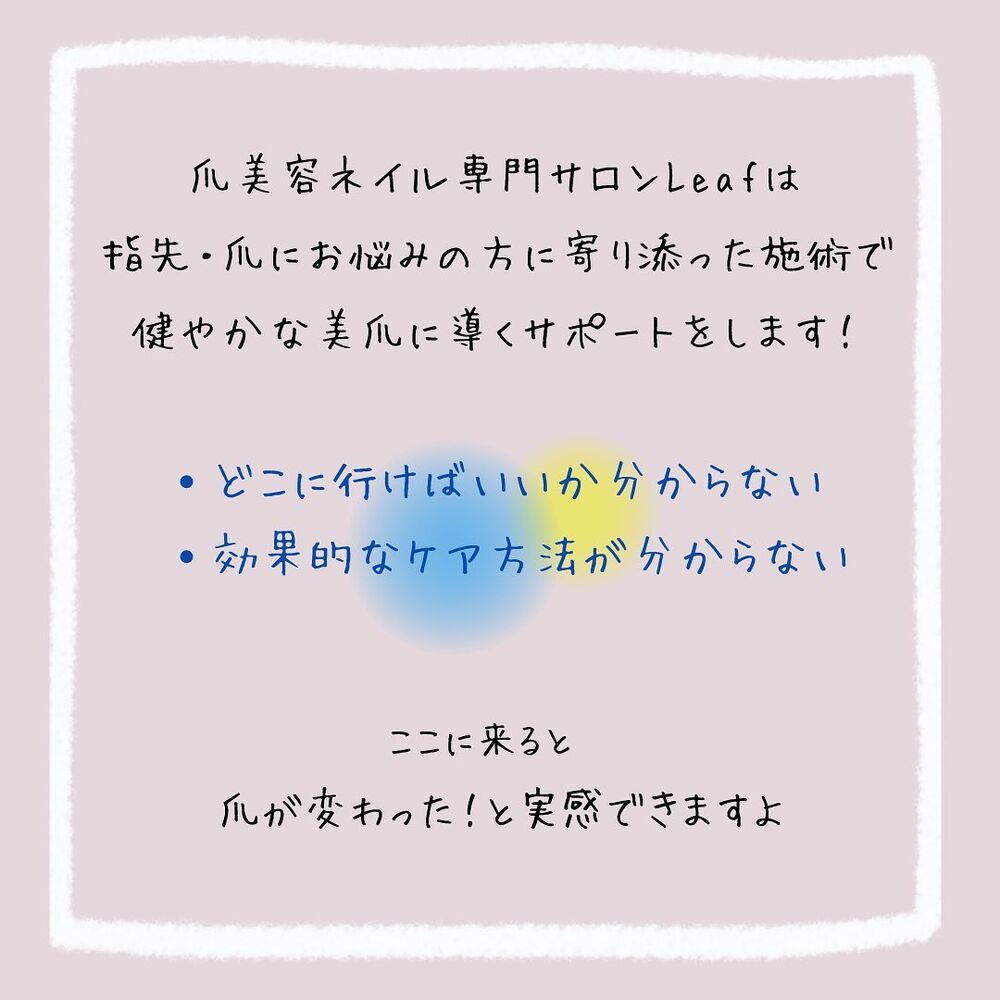 爪美容ネイル専門サロンLeafは
指先・爪にお悩みの方に寄り添った施術で
健やかな美爪に導くサポートをします!
• どこに行けばいいか分からない
• 効果的なケア方法が分からない
ここに来ると
爪が変わった!と実感できますよ